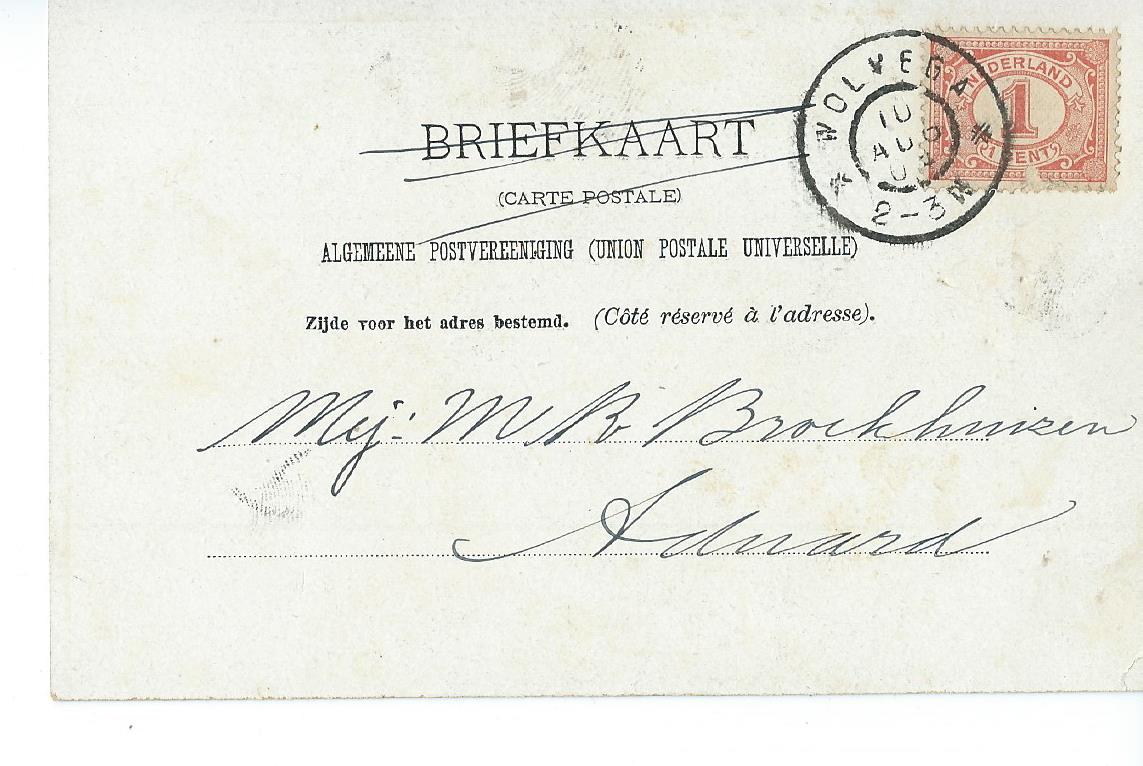 BRIEFKAART
(CARTE POSTALE)
ALGEMEENE POSTVEREENIGING (UNION POSTALE UNIVERSELLE)
Zijde voor het adres bestemd. (Côté réservé à l'adresse).
WOLVEGA
10
AUG
2-3N
NEDERLAND
1
1 CENT
Mej: M R Broekhuizen
Aduard